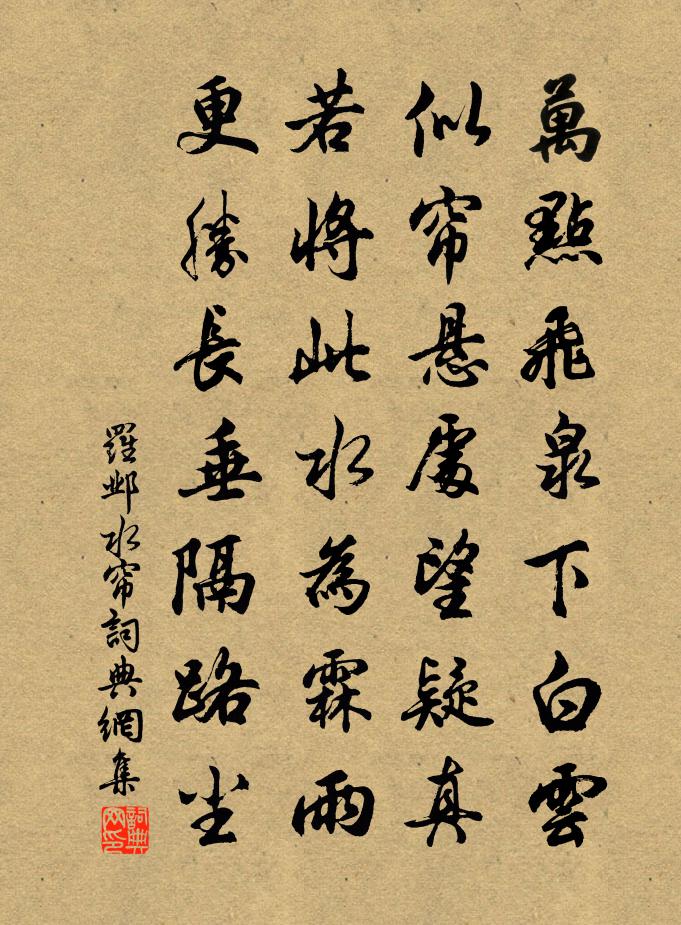 萬點飛泉下白雲
似帘懸處望疑真
若將此水為霖雨
更勝長垂隔路尘
羅邺水帘詞典網集
詞典网印